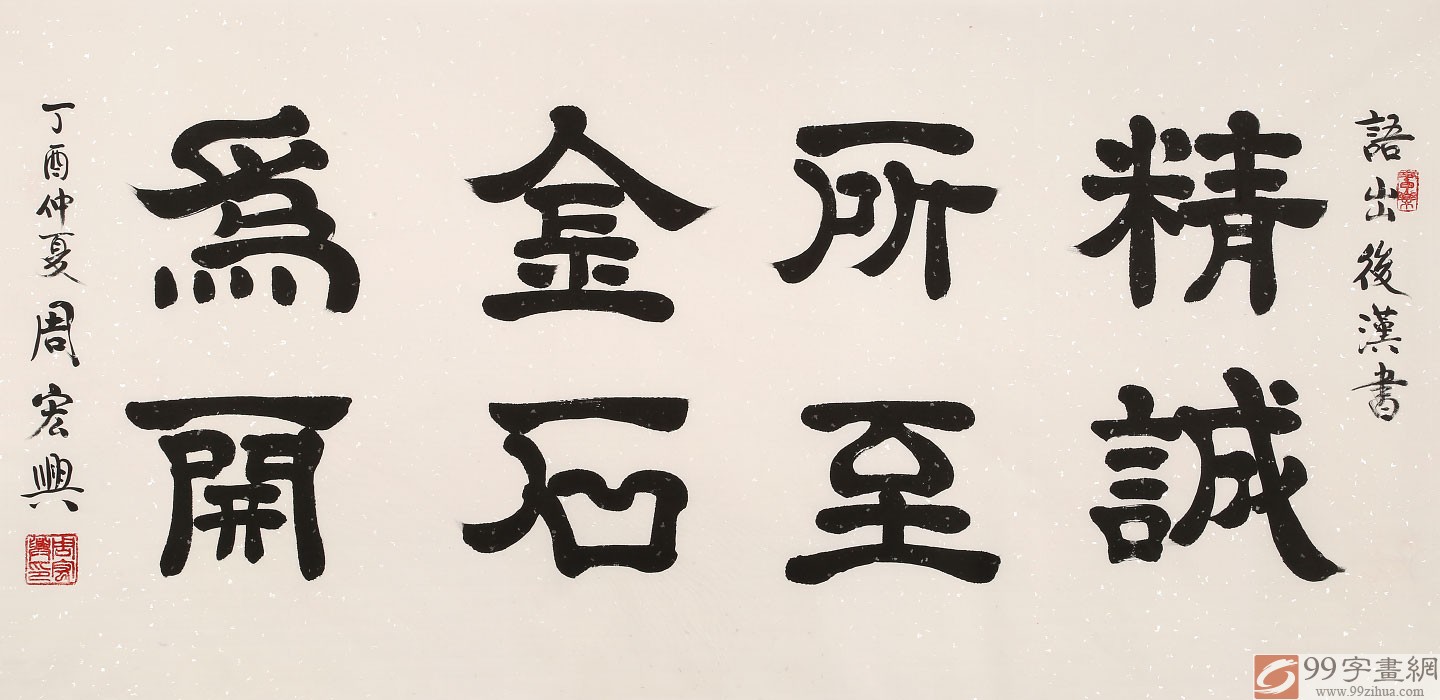 語出後漢書
精誠
所至
金石
為開
丁酉仲夏周宏興
周宏興印
99字畫網
www.99zihua.com